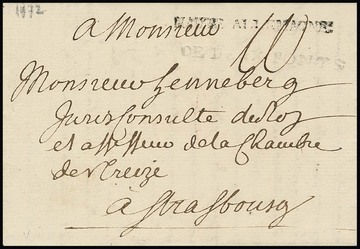 1772
a Monsieur
HAUTE ALLEMAGNE
DE DEUX PONTS
Monsieur henneberg
Jurisconsulte du Roy
et assesseur de la Chambre
de Treize
à Strasbourg